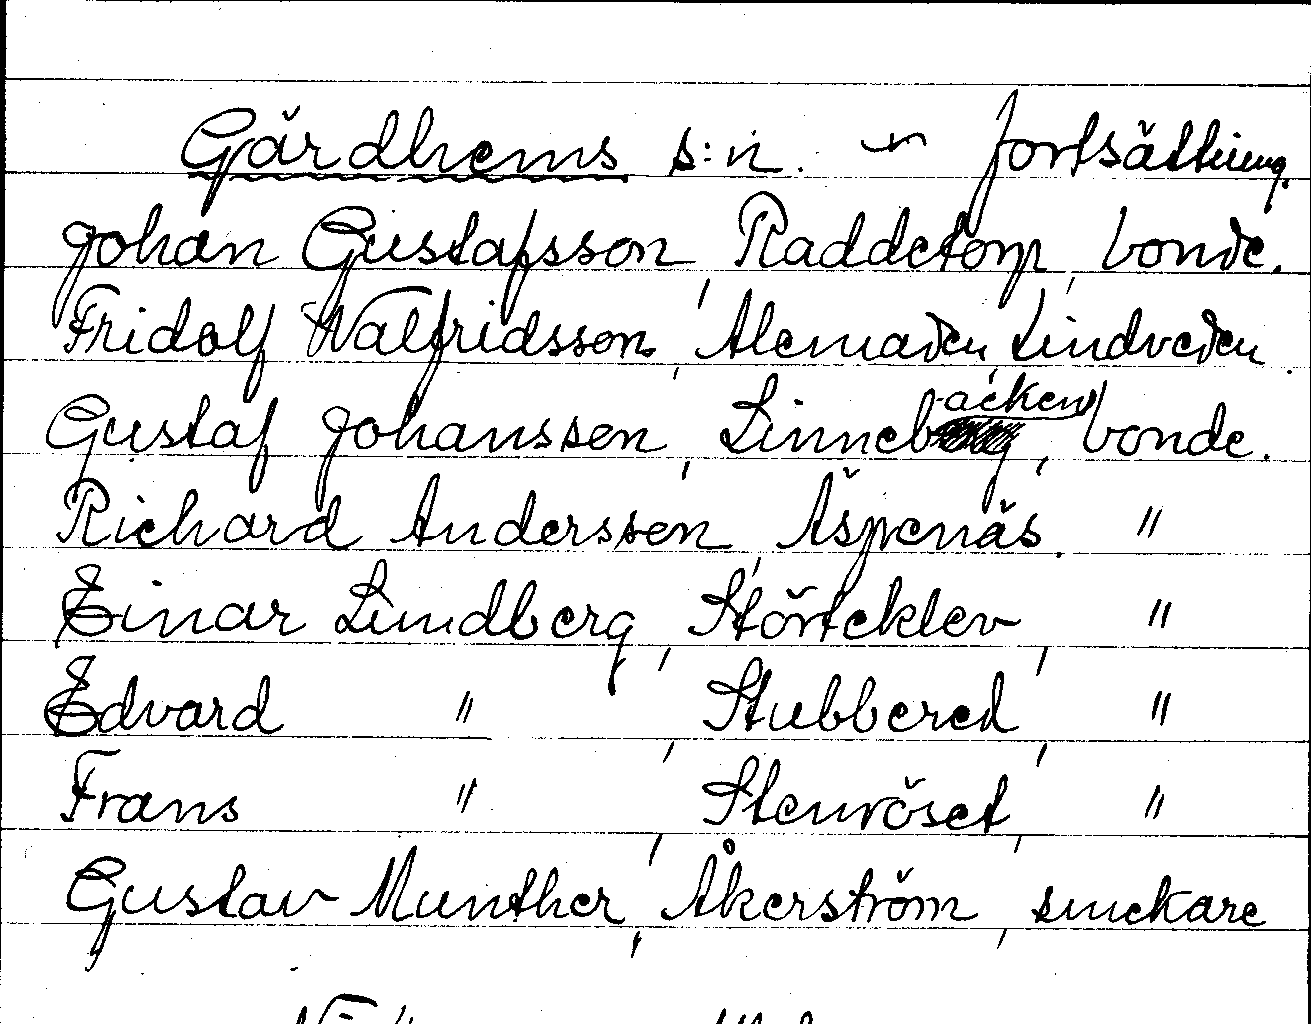 Gärdhems s:n. - fortsättning.
Johan Gustafsson, Raddetorp, bonde.
Fridolf Walfridsson, Alemaden, Lindveden.
Gustaf Johansson, Linnebacken, bonde.
Richard Andersson, Äspenäs. "
Einar Lindberg, Störteklev, "
Edvard " , Stubbered, "
Frans " , Stenröset, "
Gustav Munther, Åkerström, snickare